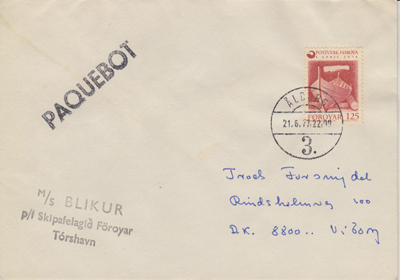 PAQUEBOT
POSTVERK FØROYA
1. APRIL 1976
FØROYAR 125
ÅLBORG
21.6.77.22.00
3.
M/S BLIKUR
p/f Skipafelagið Föroyar
Tórshavn
Troels Forsmidel
Rindsholmvej 100
DK. 8800.. Viborg